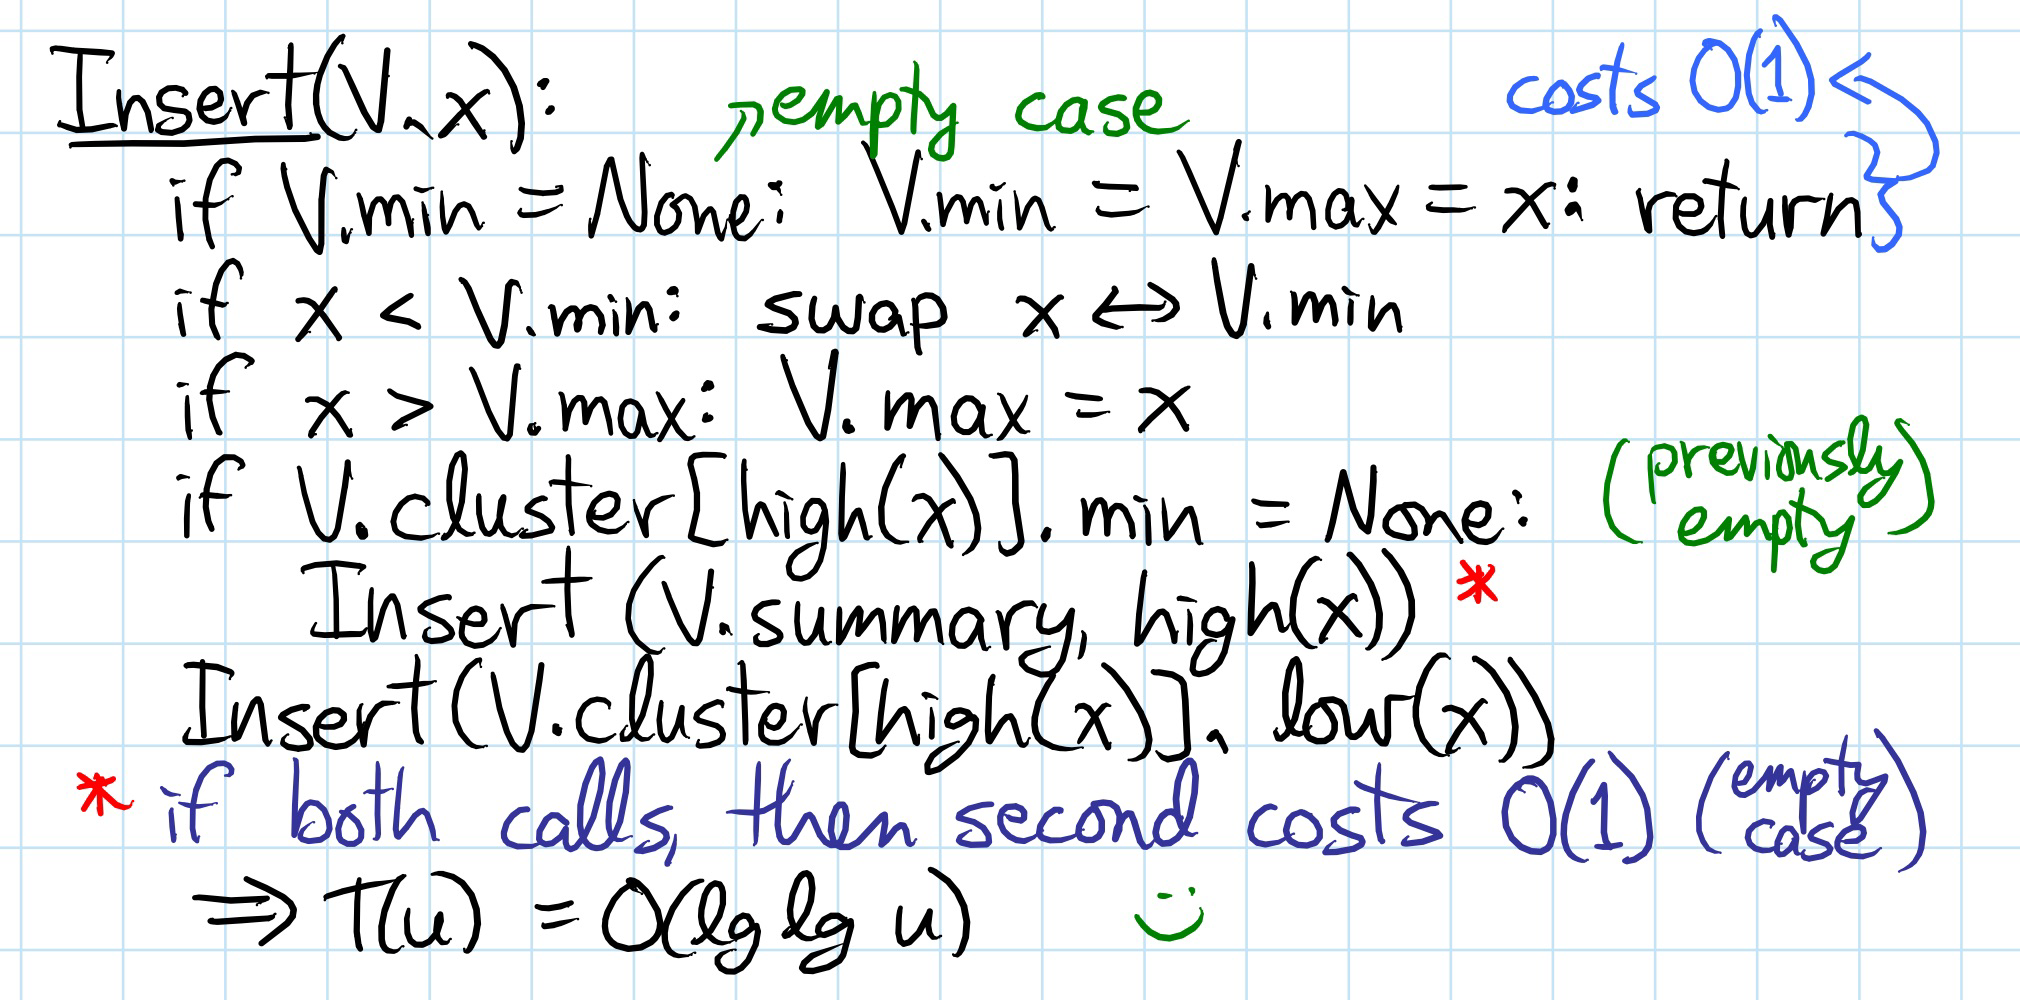 Insert(V, x):
↗ empty case
costs O(1) ←
if V.min = None: V.min = V.max = x: return }
if x < V.min: swap x ↔ V.min
if x > V.max: V.max = x
if V.cluster[high(x)].min = None:
(previously
empty)
Insert (V.summary, high(x)) *
Insert(V.cluster[high(x)], low(x))
* if both calls, then second costs O(1) (empty
case)
⇒ T(u) = O(lg lg u) :)